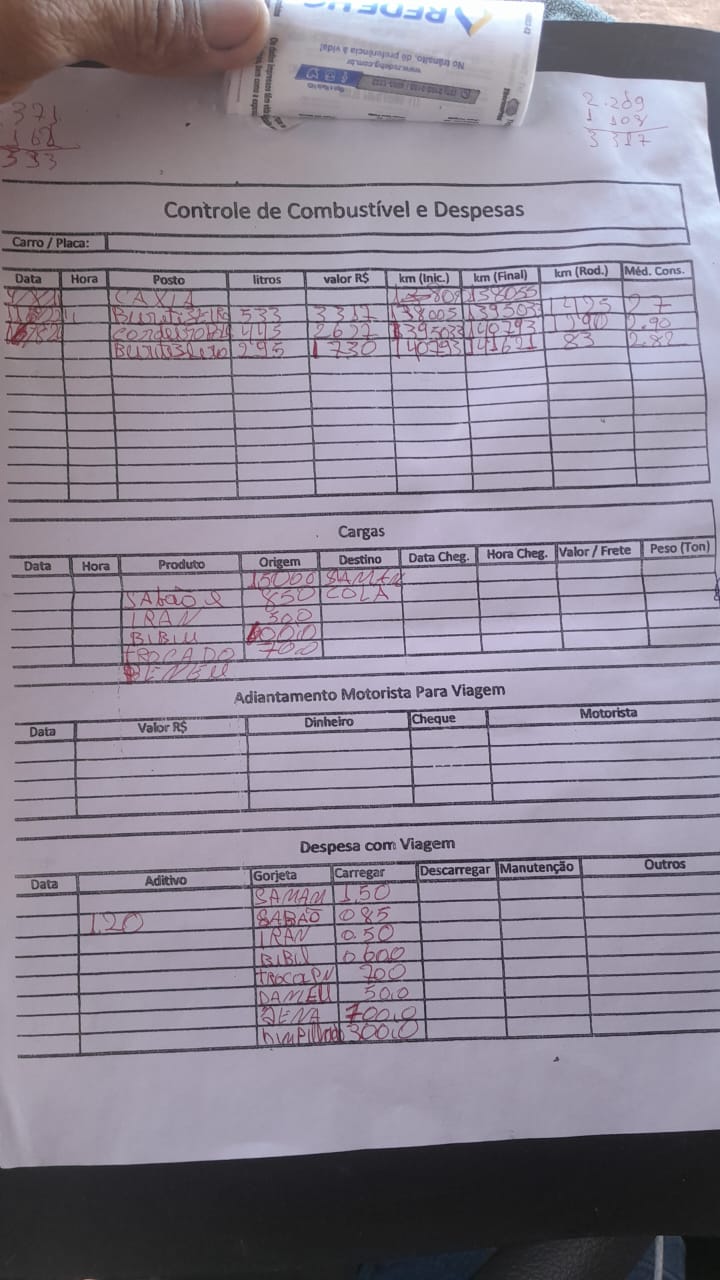 REDEHG
No trânsito dê preferência à vida!
www.redehg.com.br
371
162
533
2.209
1 108
3 317
Controle de Combustível e Despesas
Carro / Placa:
Data Hora Posto litros valor R$ km (Inic.) km (Final) km (Rod.) Méd. Cons.
CAXIA 138055
533 3317 138005 139503 1425 27
445 2627 1395033 140793 1290 2.90
295 1730 140793 141621 83 2.82
Cargas
Data Hora Produto Origem Destino Data Cheg. Hora Cheg. Valor / Frete Peso (Ton)
15000 SAMAN
SABÃO 850 COLA
IRAN 500
BIBIU 600.0
TROCADO 70.0
PENEU
Adiantamento Motorista Para Viagem
Data Valor R$ Dinheiro Cheque Motorista
Despesa com Viagem
Data Aditivo Gorjeta Carregar Descarregar Manutenção Outros
SAMAM 1.50
120 SABÃO 085
IRAN 0.50
BIBIU 0600
TROCAPN 700
DANIEU 50.0
700.0
300.0